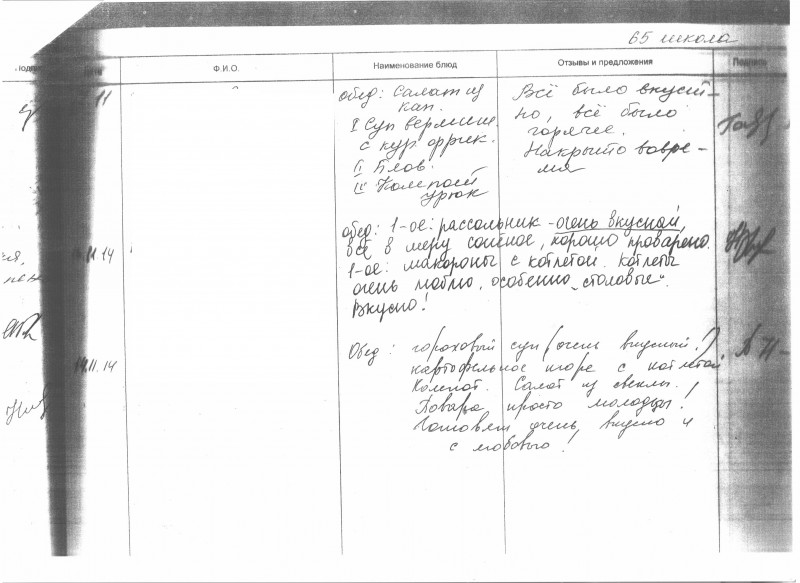 65 школа
Ф.И.О.
Наименование блюд
Отзывы и предложения
Подпись
11
обед: Салат из
кап.
I Суп вермиш.
с кур. фрик.
II Плов.
III Компот
урюк
Всё было вкусн-
но, всё было
горячее.
Накрыто вовре-
мя
11.14
обед: 1-ое: рассольник - очень вкусный,
всё в меру соленое, хорошо проварено.
1-ое: макароны с котлетой. котлеты
очень люблю, особенно „столовые".
Вкусно!
14.11.14
Обед: гороховый суп (очень вкусный!)
картофельное пюре с котлетой
Компот. Салат из свеклы.
Повара просто молодцы!
Готовят очень вкусно и
с любовью!